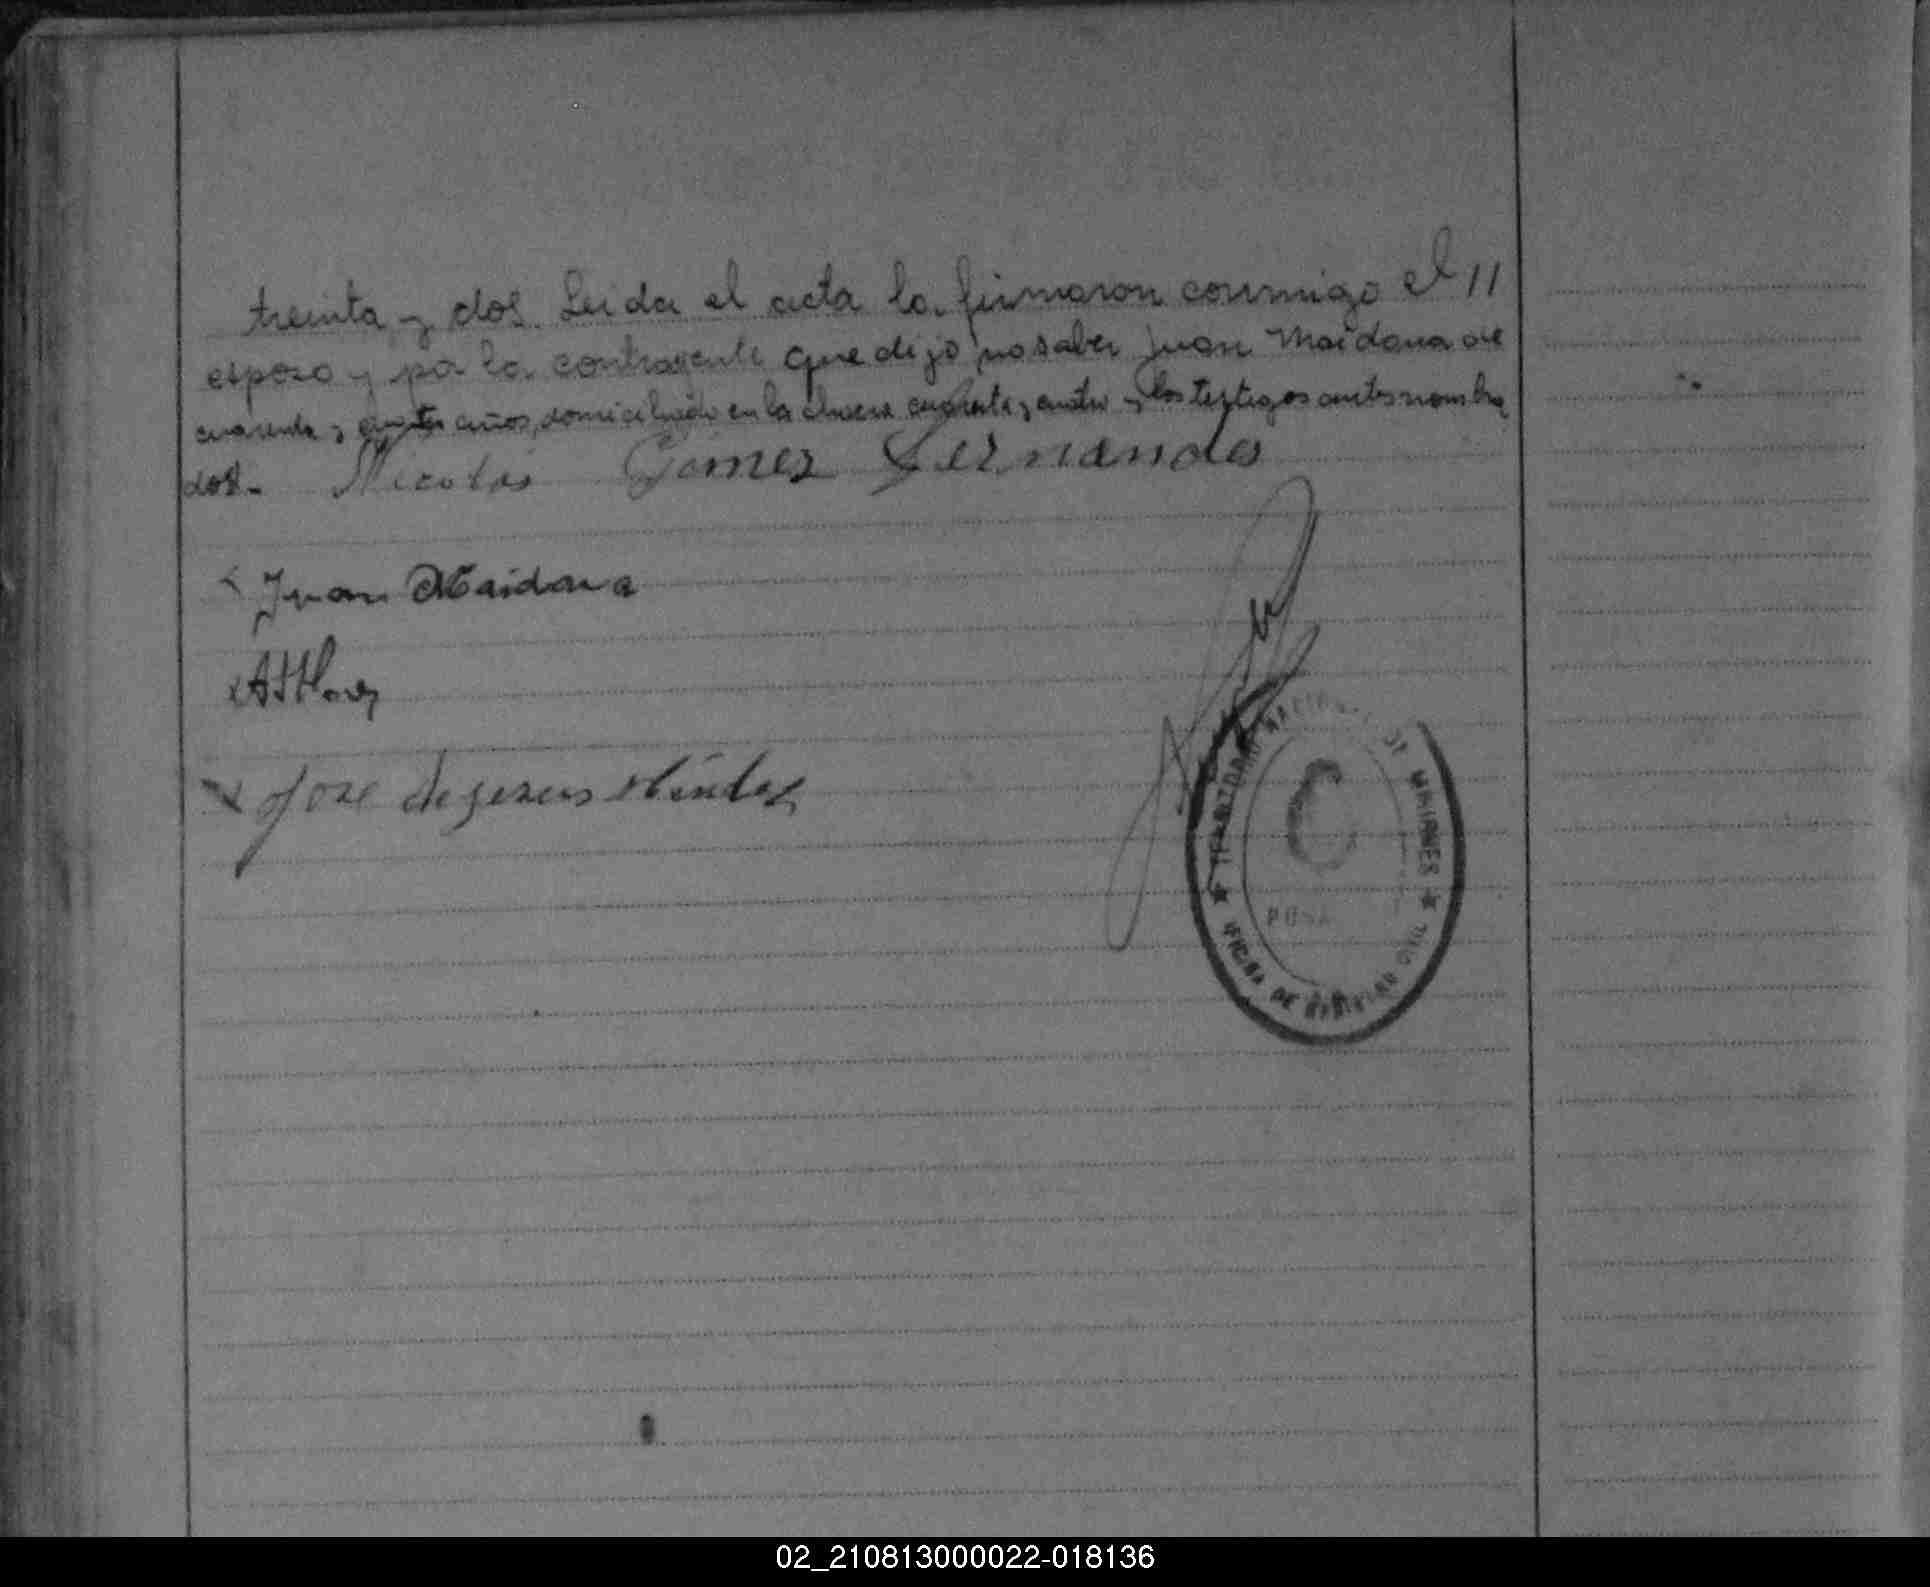 treinta y dos. Leida el acta la firmaron conmigo el //
esposo y por la contrayente que dijo no saber Juan Maidana de
cuarenta y años, domiciliado en la chacra cuarenta y cuatro y los testigos antes nombra
dos.- Nicolás Gómez Fernandes
Juan Maidana
José de Jesus Méndez
TERRITORIO NACIONAL DE MISIONES
POSA
OFICINA DE REGISTRO CIVIL
02_210813000022-018136